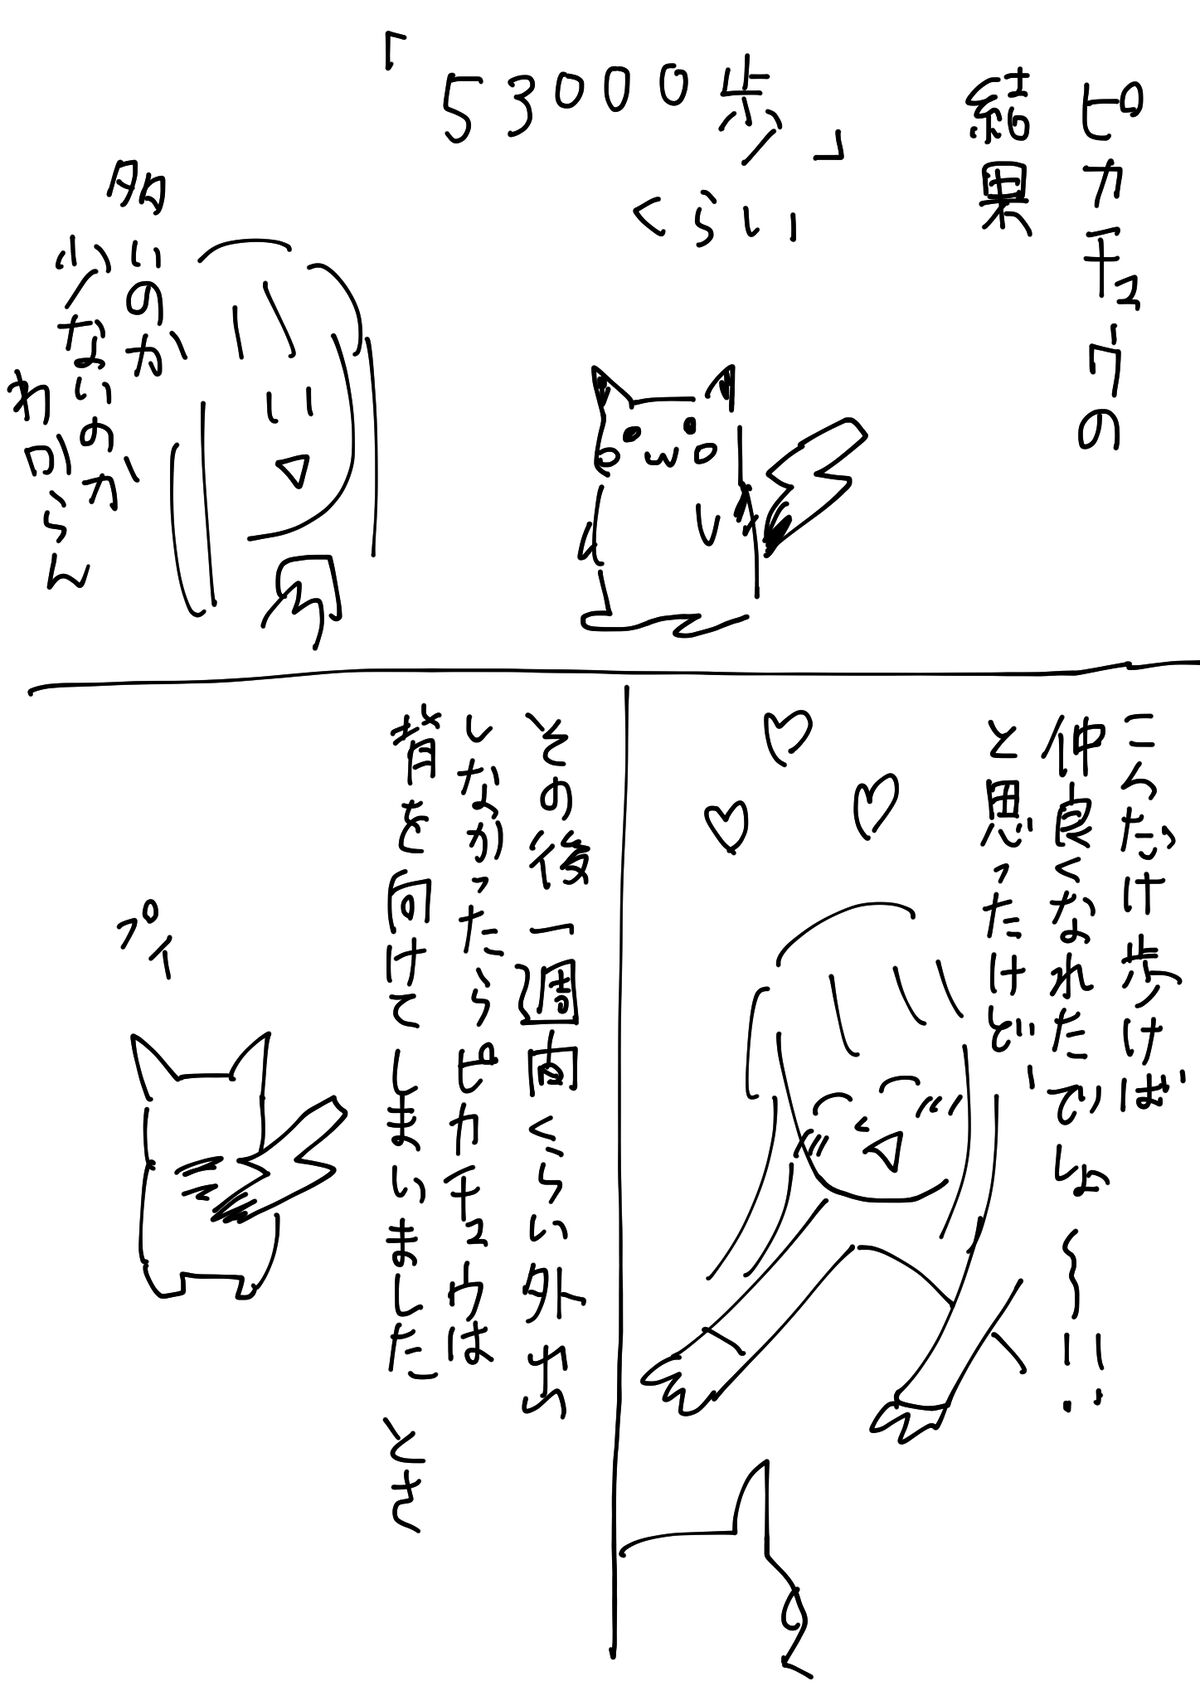 ピカチュウの
結果
「53000歩」
くらい
多いのか
少ないのか
わからん
こんだけ歩けば
仲良くなれたでしょ〜!!
と思ったけど、
その後一週間くらい外出
しなかったらピカチュウは
背を向けてしまいました とさ
プイ